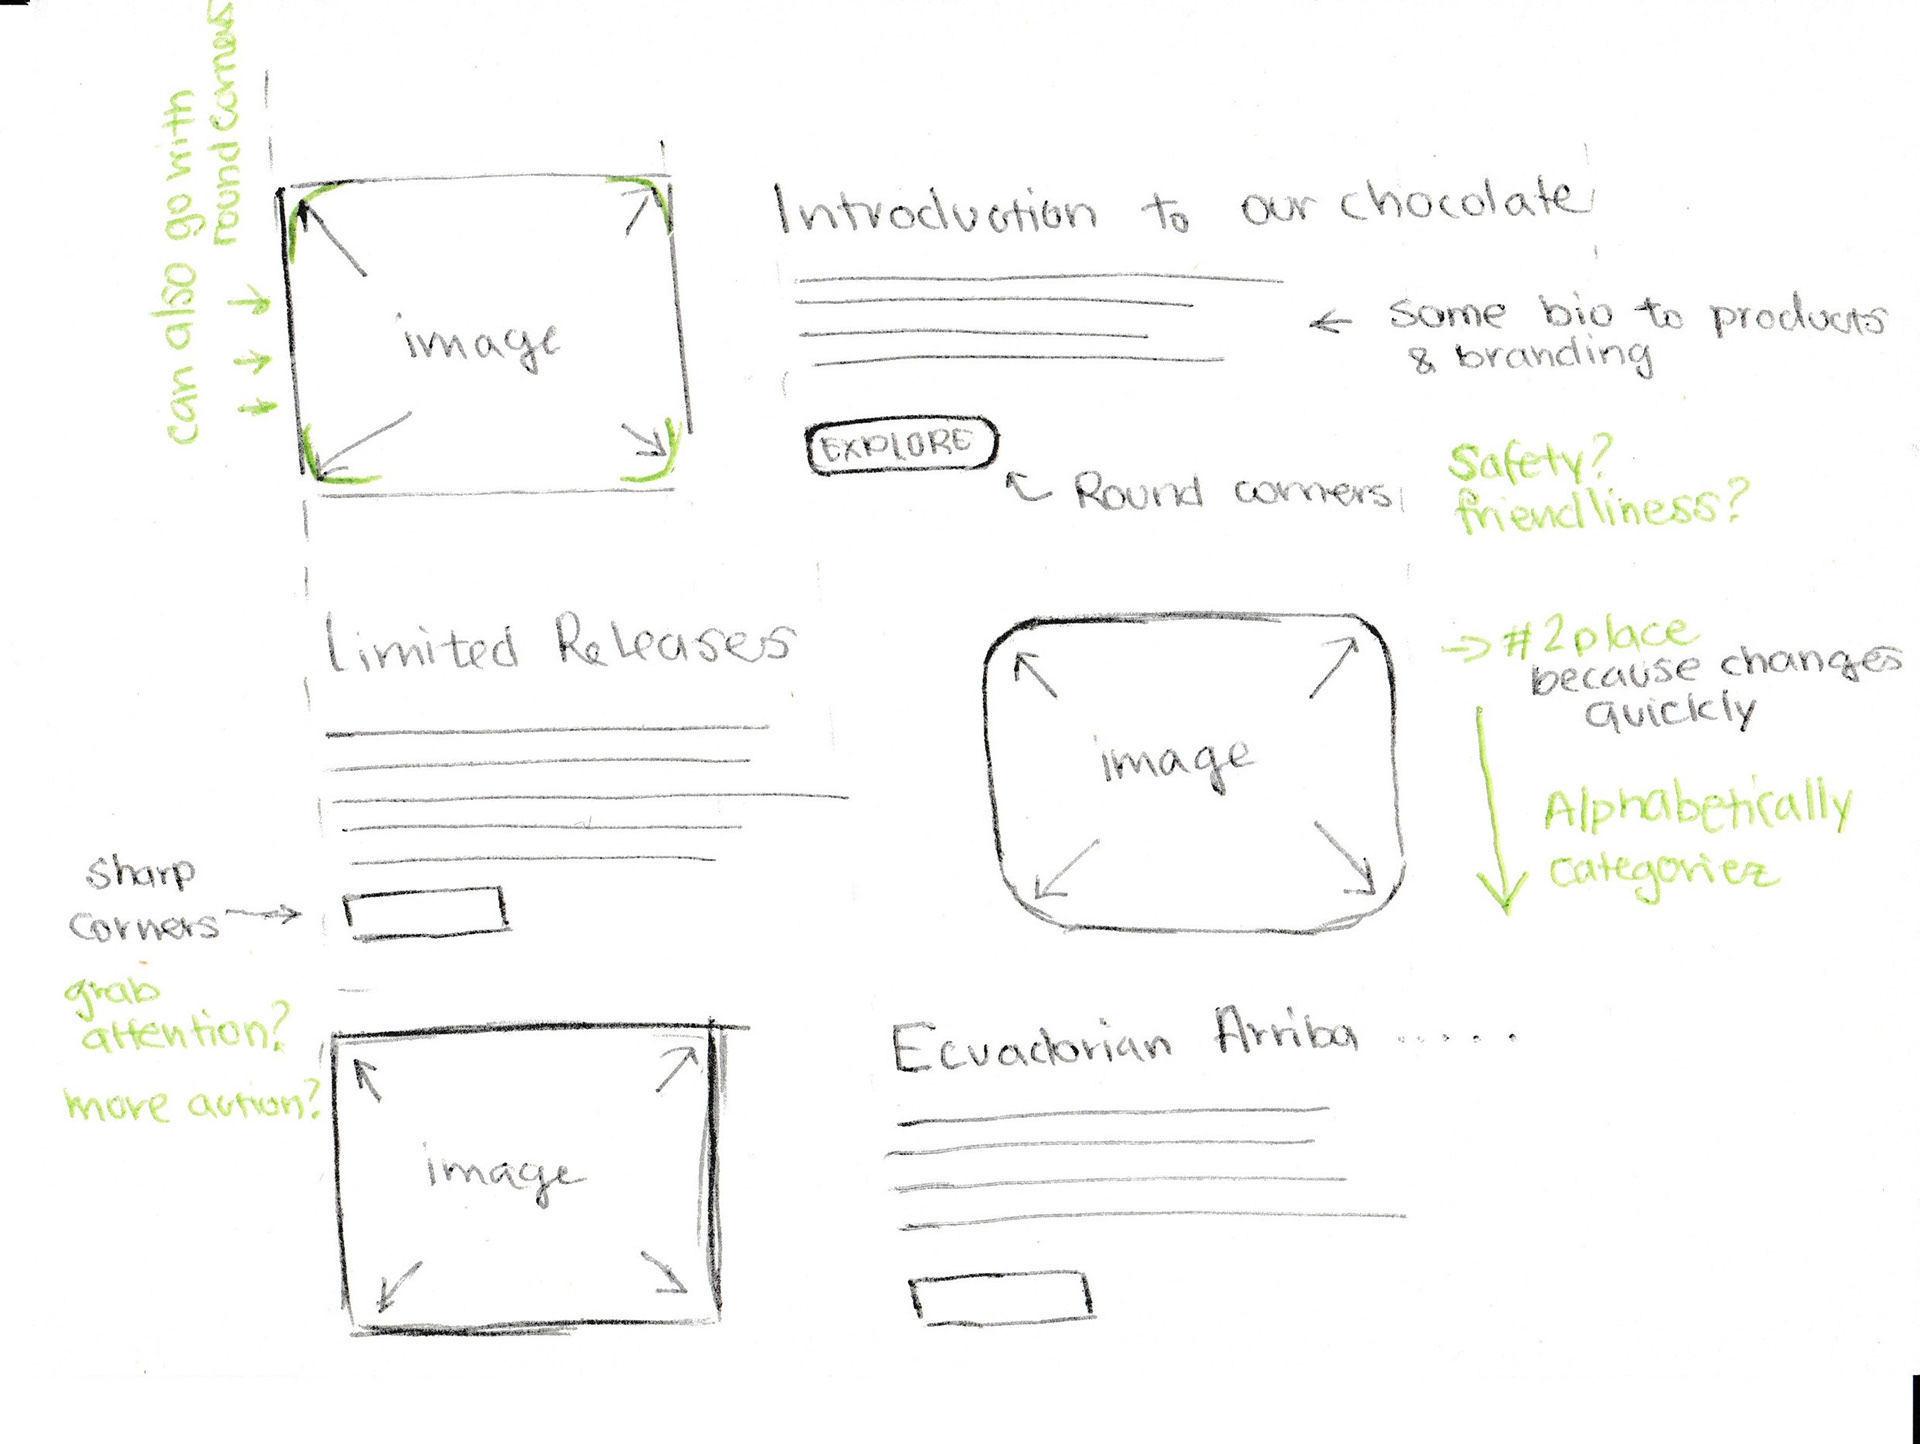 can also go with
round corners
image
Introduction to our chocolate
← some bio to products
& branding
EXPLORE
Round corners
Safety?
friendliness?
Limited Releases
image
→ #2 place
because changes
quickly
Alphabetically
categories
sharp
corners
grab
attention?
more action?
image
Ecuadorian Arriba .....